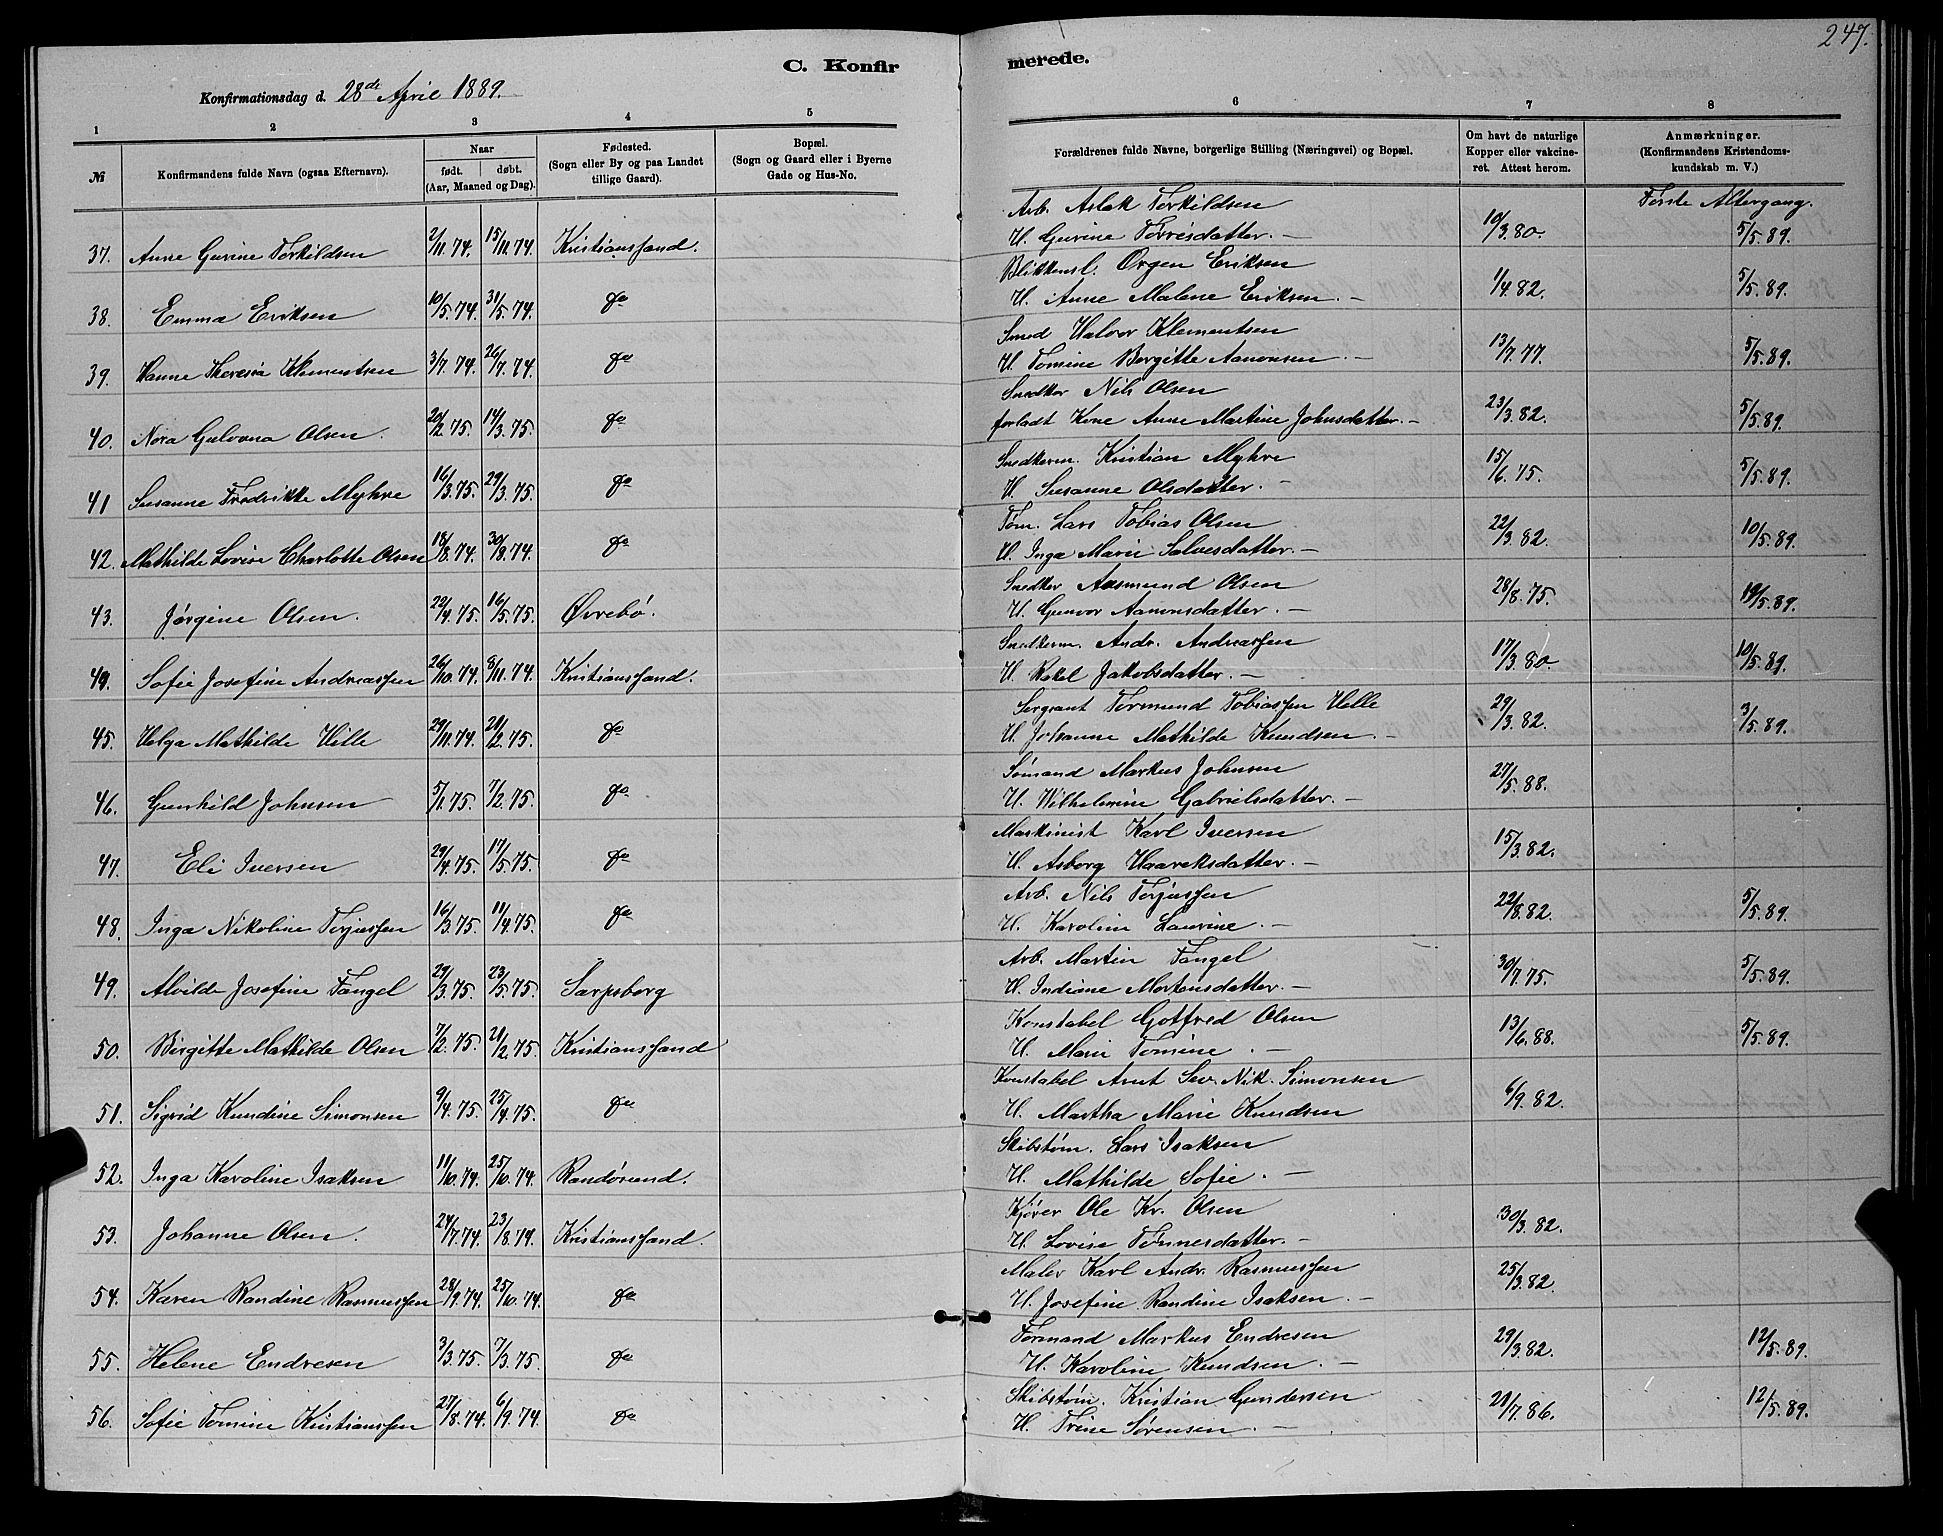 247.
C. Konfirmerede.
Konfirmationsdag d. 28de April 1889.
1 2 3 4 5 6 7 8
№
Konfirmandens fulde Navn (ogsaa Efternavn).
Naar
født. døbt.
(Aar, Maaned og Dag).
Fødested.
(Sogn eller By og paa Landet
tillige Gaard).
Bopæl.
(Sogn og Gaard eller i Byerne
Gade og Hus-No.
Forældrenes fulde Navne, borgerlige Stilling (Næringsvei) og Bopæl.
Om havt de naturlige
Kopper eller vakcine-
ret. Attest herom.
Anmærkninger.
(Konfirmandens Kristendoms-
kundskab m. V.)
Første Altergang.
Arb. Aslak Torkildsen
37. Anne Gurine Torkildsen 2/11.74. 15/11.74. Kristianssand. H. Gurine Torrisdatter.— 10/3.80. 5/5.89.
Blikkensl. Ørgen Eriksen
38. Emma Eriksen 10/5.74. 31/5.74. do H. Anne Malene Eriksen.— 1/4.82. 5/5.89.
Smed Halvor Klementsen
39. Hanne Theresia Klementsen 3/7.74. 26/7.74. do H. Tomine Borgitte Aanonsen.— 13/7.77. 5/5.89.
Snedker Nils Olsen
40. Nora Gulovna Olsen. 20/2.75. 14/3.75. do forladt Kone Anne Martine Johnsdatter.— 23/3.82. 5/5.89.
Snedkerm. Kristian Myhre
41 Susanne Fredrikke Myhre 16/3.75. 29/3.75. do H. Susanne Olsdatter.— 15/6.75. 5/5.89.
Tøm. Lars Tobias Olsen
42. Mathilde Lovise Charlotte Olsen 18/8.74. 30/8.74. do H. Inga Marie Salvesdatter.— 22/3.82. 10/5.89.
Snedker Aasmund Olsen
43. Jørgine Olsen. 22/4.75. 16/5.75. Øvrebø. H. Gunvor Aanonsdatter.— 28/8.75. 19/5.89.
Snedkerm. Andr. Andreassen
44. Sofie Josefine Andreassen 26/10.74. 8/11.74. Kristianssand. H. Rakel Jakobsdatter.— 17/3.80. 10/5.89.
Sergeant Tormund Tobiassen Helle
45. Helga Mathilde Helle 29/11.74. 21/2.75. do H. Johanne Mathilde Knudsen.— 29/3.82. 3/5.89.
Sømand Markus Johnsen
46. Gunhild Johnsen 5/1.75. 7/2.75. do H. Wilhelmine Gabrielsdatter.— 27/5.88.
Maskinist Karl Iversen
47. Eli Iversen 29/4.75. 17/5.75. do H. Asborg Haareksdatter.— 15/3.82.
Arb. Nils Terjussen
48. Inga Nikoline Terjussen 16/3.75. 11/4.75. do H. Karoline Laurine.— 22/8.82. 5/5.89.
Arb. Martin Fangel
49. Alvilde Josefine Fangel 29/3.75. 23/5.75. Sarpsborg H. Indiane Mortensdatter.— 30/7.75. 5/5.89.
Konstabel Gotfred Olsen
50. Birgitte Mathilde Olsen 7/2.75. 21/2.75. Kristianssand H. Marie Tomine.— 13/6.88. 5/5.89.
Konstabel Arnt Sev. Nik. Simonsen
51. Sigrid Kundine Simonsen 9/4.75. 25/4.75. do H. Martha Marie Knudsen 6/9.82.
Skibstøm. Lars Isaksen
52. Inga Karoline Isaksen 11/10.74. 25/10.74. Randøsund. H. Mathilde Sofie.—
Kjører Ole Kr. Olsen
53. Johanne Olsen. 24/7.74. 23/8.74. Kristianssand. H. Lovise Tønnesdatter.— 30/3.82.
Maler Karl Andr. Rasmussen
54. Karen Randine Rasmussen 28/9.74. 25/10.74. do H. Josefine Randine Isaksen.— 25/3.82.
Formand Markus Endresen
55. Helene Endresen 3/3.75. 7/3.75. do H. Karoline Knudsen.— 29/3.82. 12/5.89.
Skibstøm. Kristian Gundersen
56. Sofie Tomine Kristianssen 27/8.74. 6/9.74. do H. Trine Sørensen.— 21/7.86. 12/5.89.